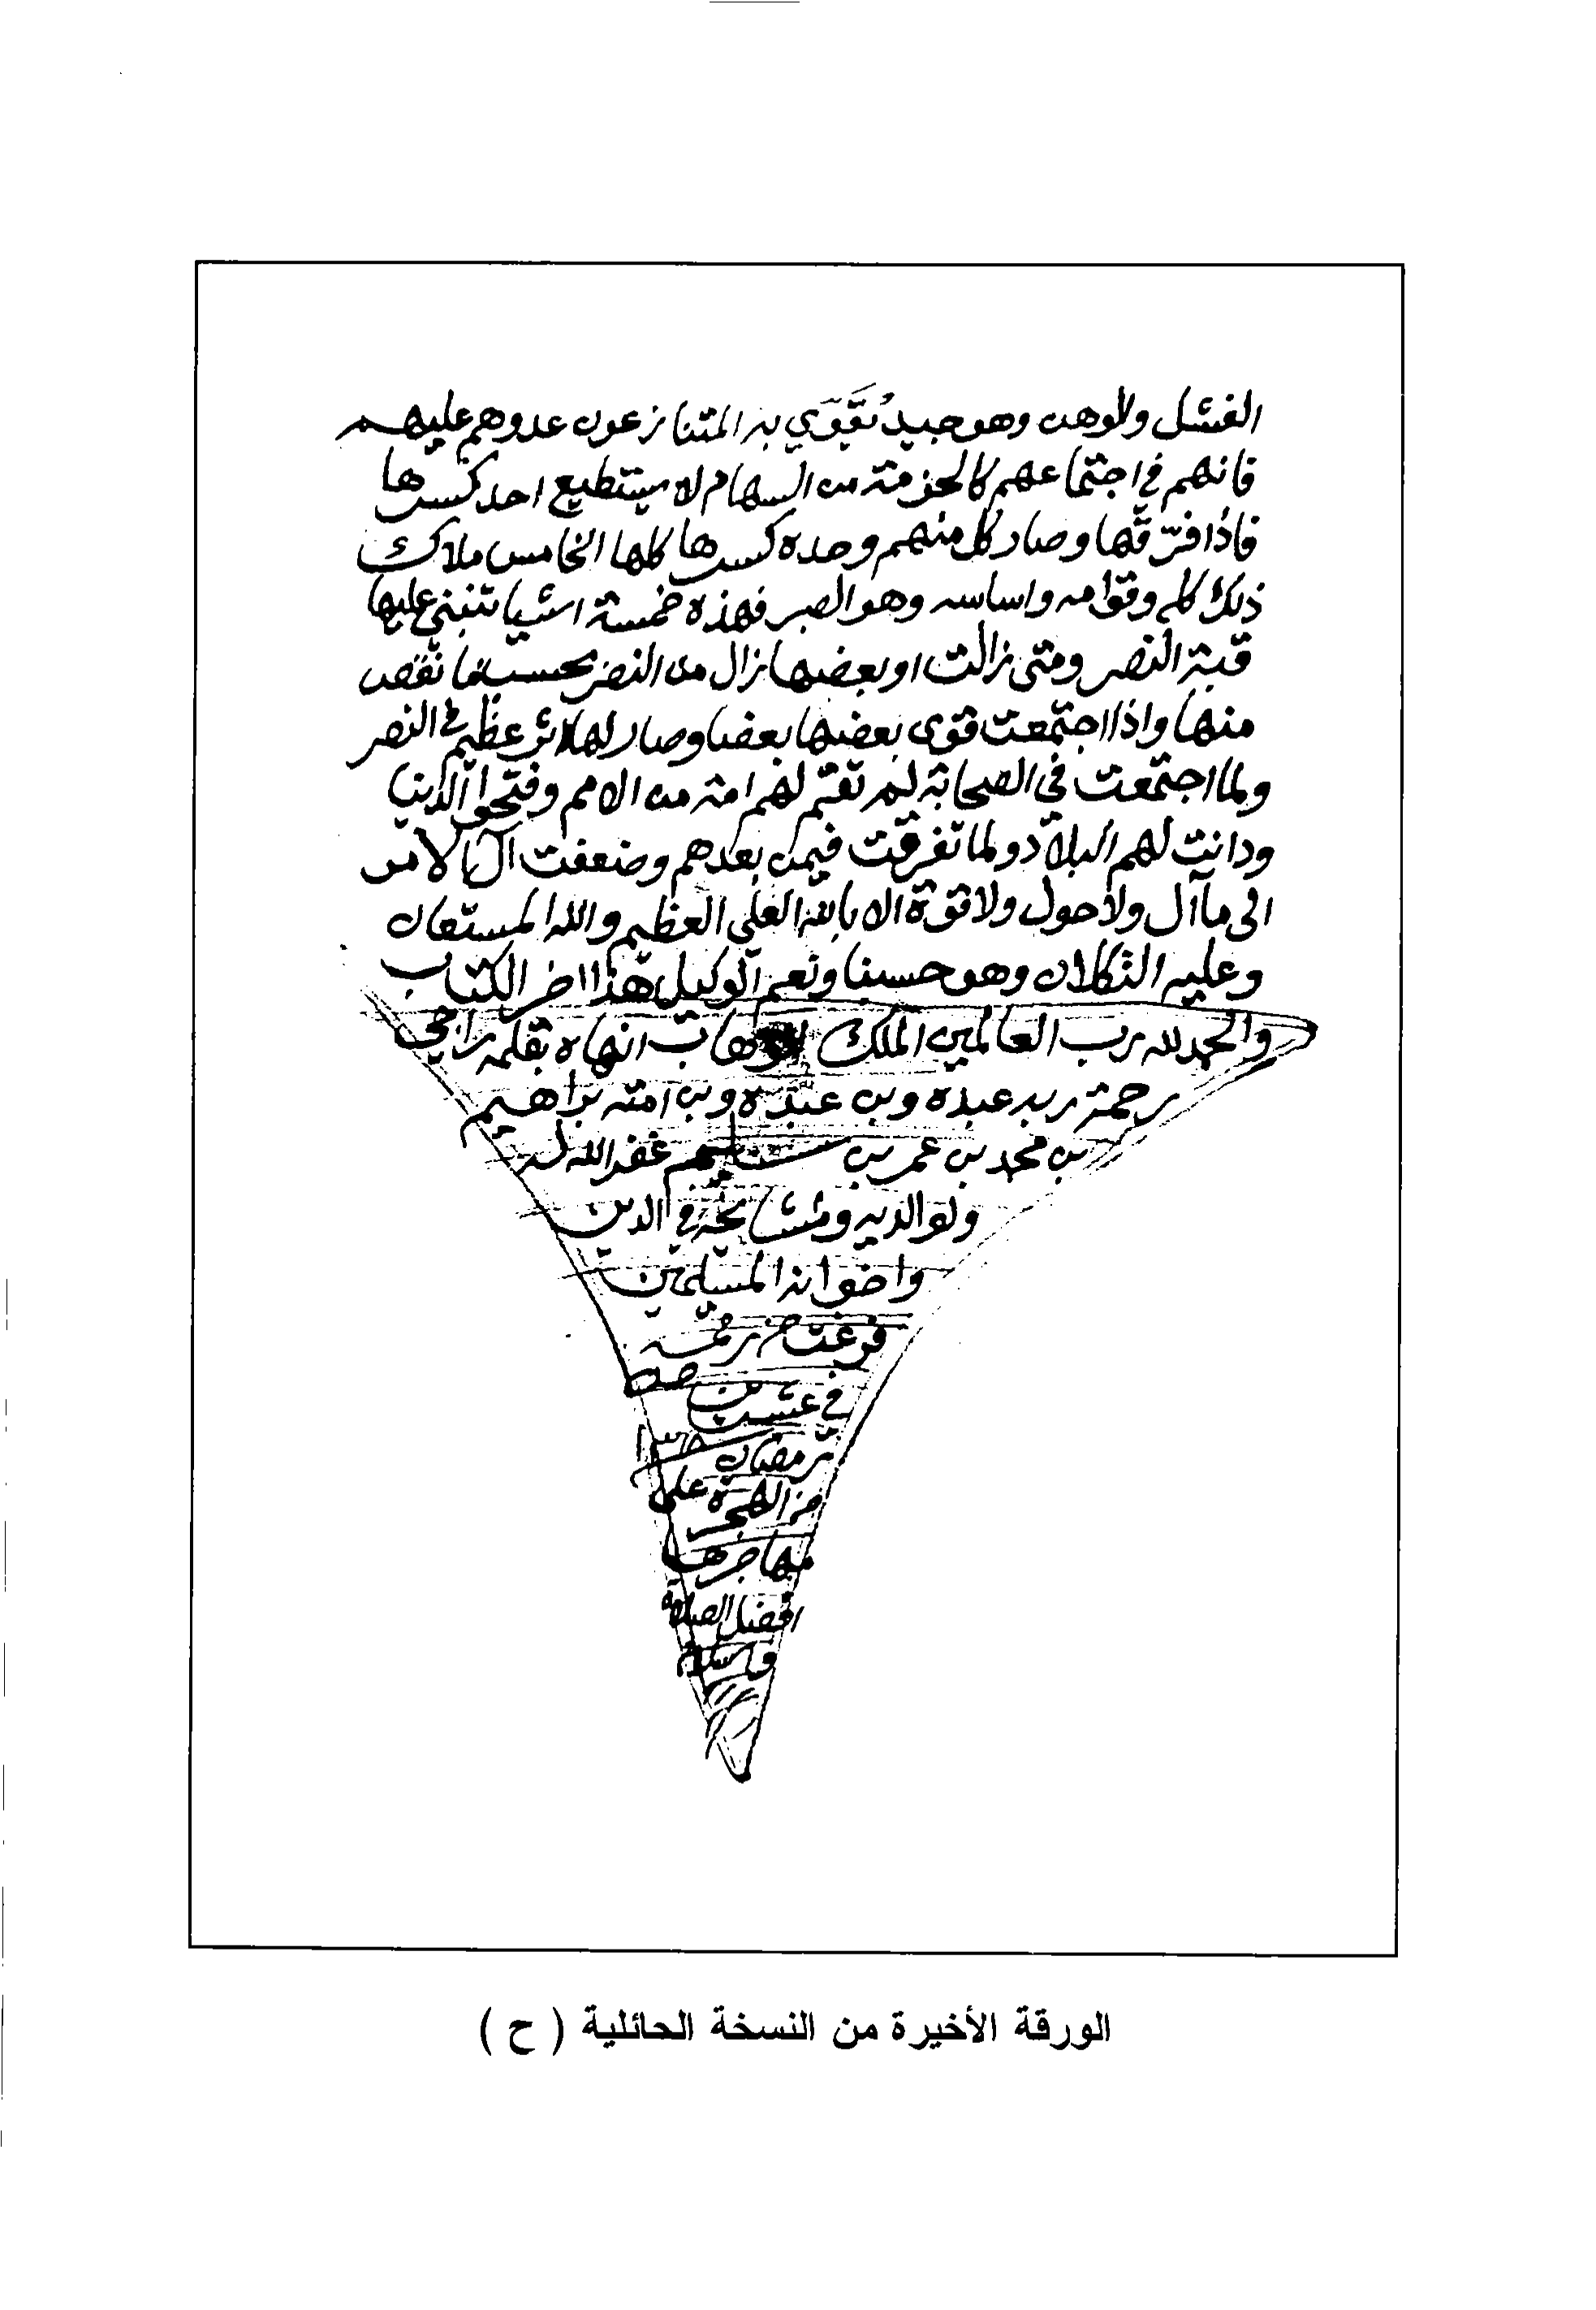 الفشل والوهن وهو جند يُقَوّي به المتنازعون عدوهم عليهم
فانهم في اجتماعهم كالحزمة من السهام لا يستطيع احد كسرها
فاذا فرّقها وصار كل منهم وحده كسرها كلها الخامس ملاك
ذلك كله وقوامه واساسه وهو الصبر فهذه خمسة اشيا تنبني عليها
قبة النصر ومتى زالت او بعضها زال من النصر بحسب ما نقص
منها واذا اجتمعت قوى بعضها بعضا وصار لها اثر عظيم في النصر
ولما اجتمعت في الصحابة لم تقم لهم امة من الامم وفتحوا الدنيا
ودانت لهم البلاد ولما تفرقت فيمن بعدهم وضعفت آل الامر
الى ما آل ولا حول ولا قوة الا بالله العلي العظيم والله المستعان
وعليه التكلان وهو حسبنا ونعم الوكيل هذا اخر الكتاب
والحمد لله رب العالمين الملك الوهاب انهاه بقلمه راجي
رحمة ربه عبده وبن عبده وبن امته براهيم
بن محمد بن عمر بن غفر الله له
ولوالديه ومشايخه في الدين
واخوانه المسلمين
فرغت من رقمه
في عشرين
رمضان
من الهجرة على
مهاجرها
افضل الصلاة
والسلام
الورقة الأخيرة من النسخة الحائلية ( ح )